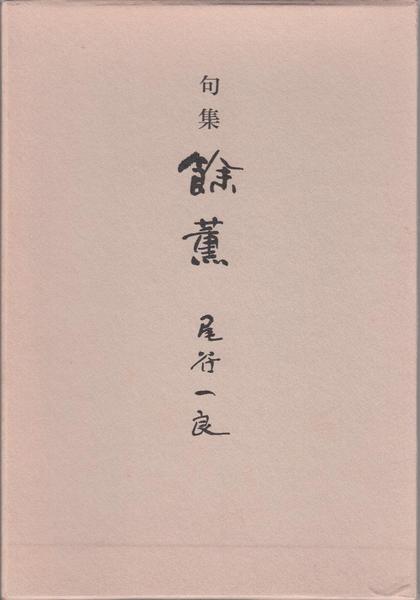 句集
餘薫
尾谷一良